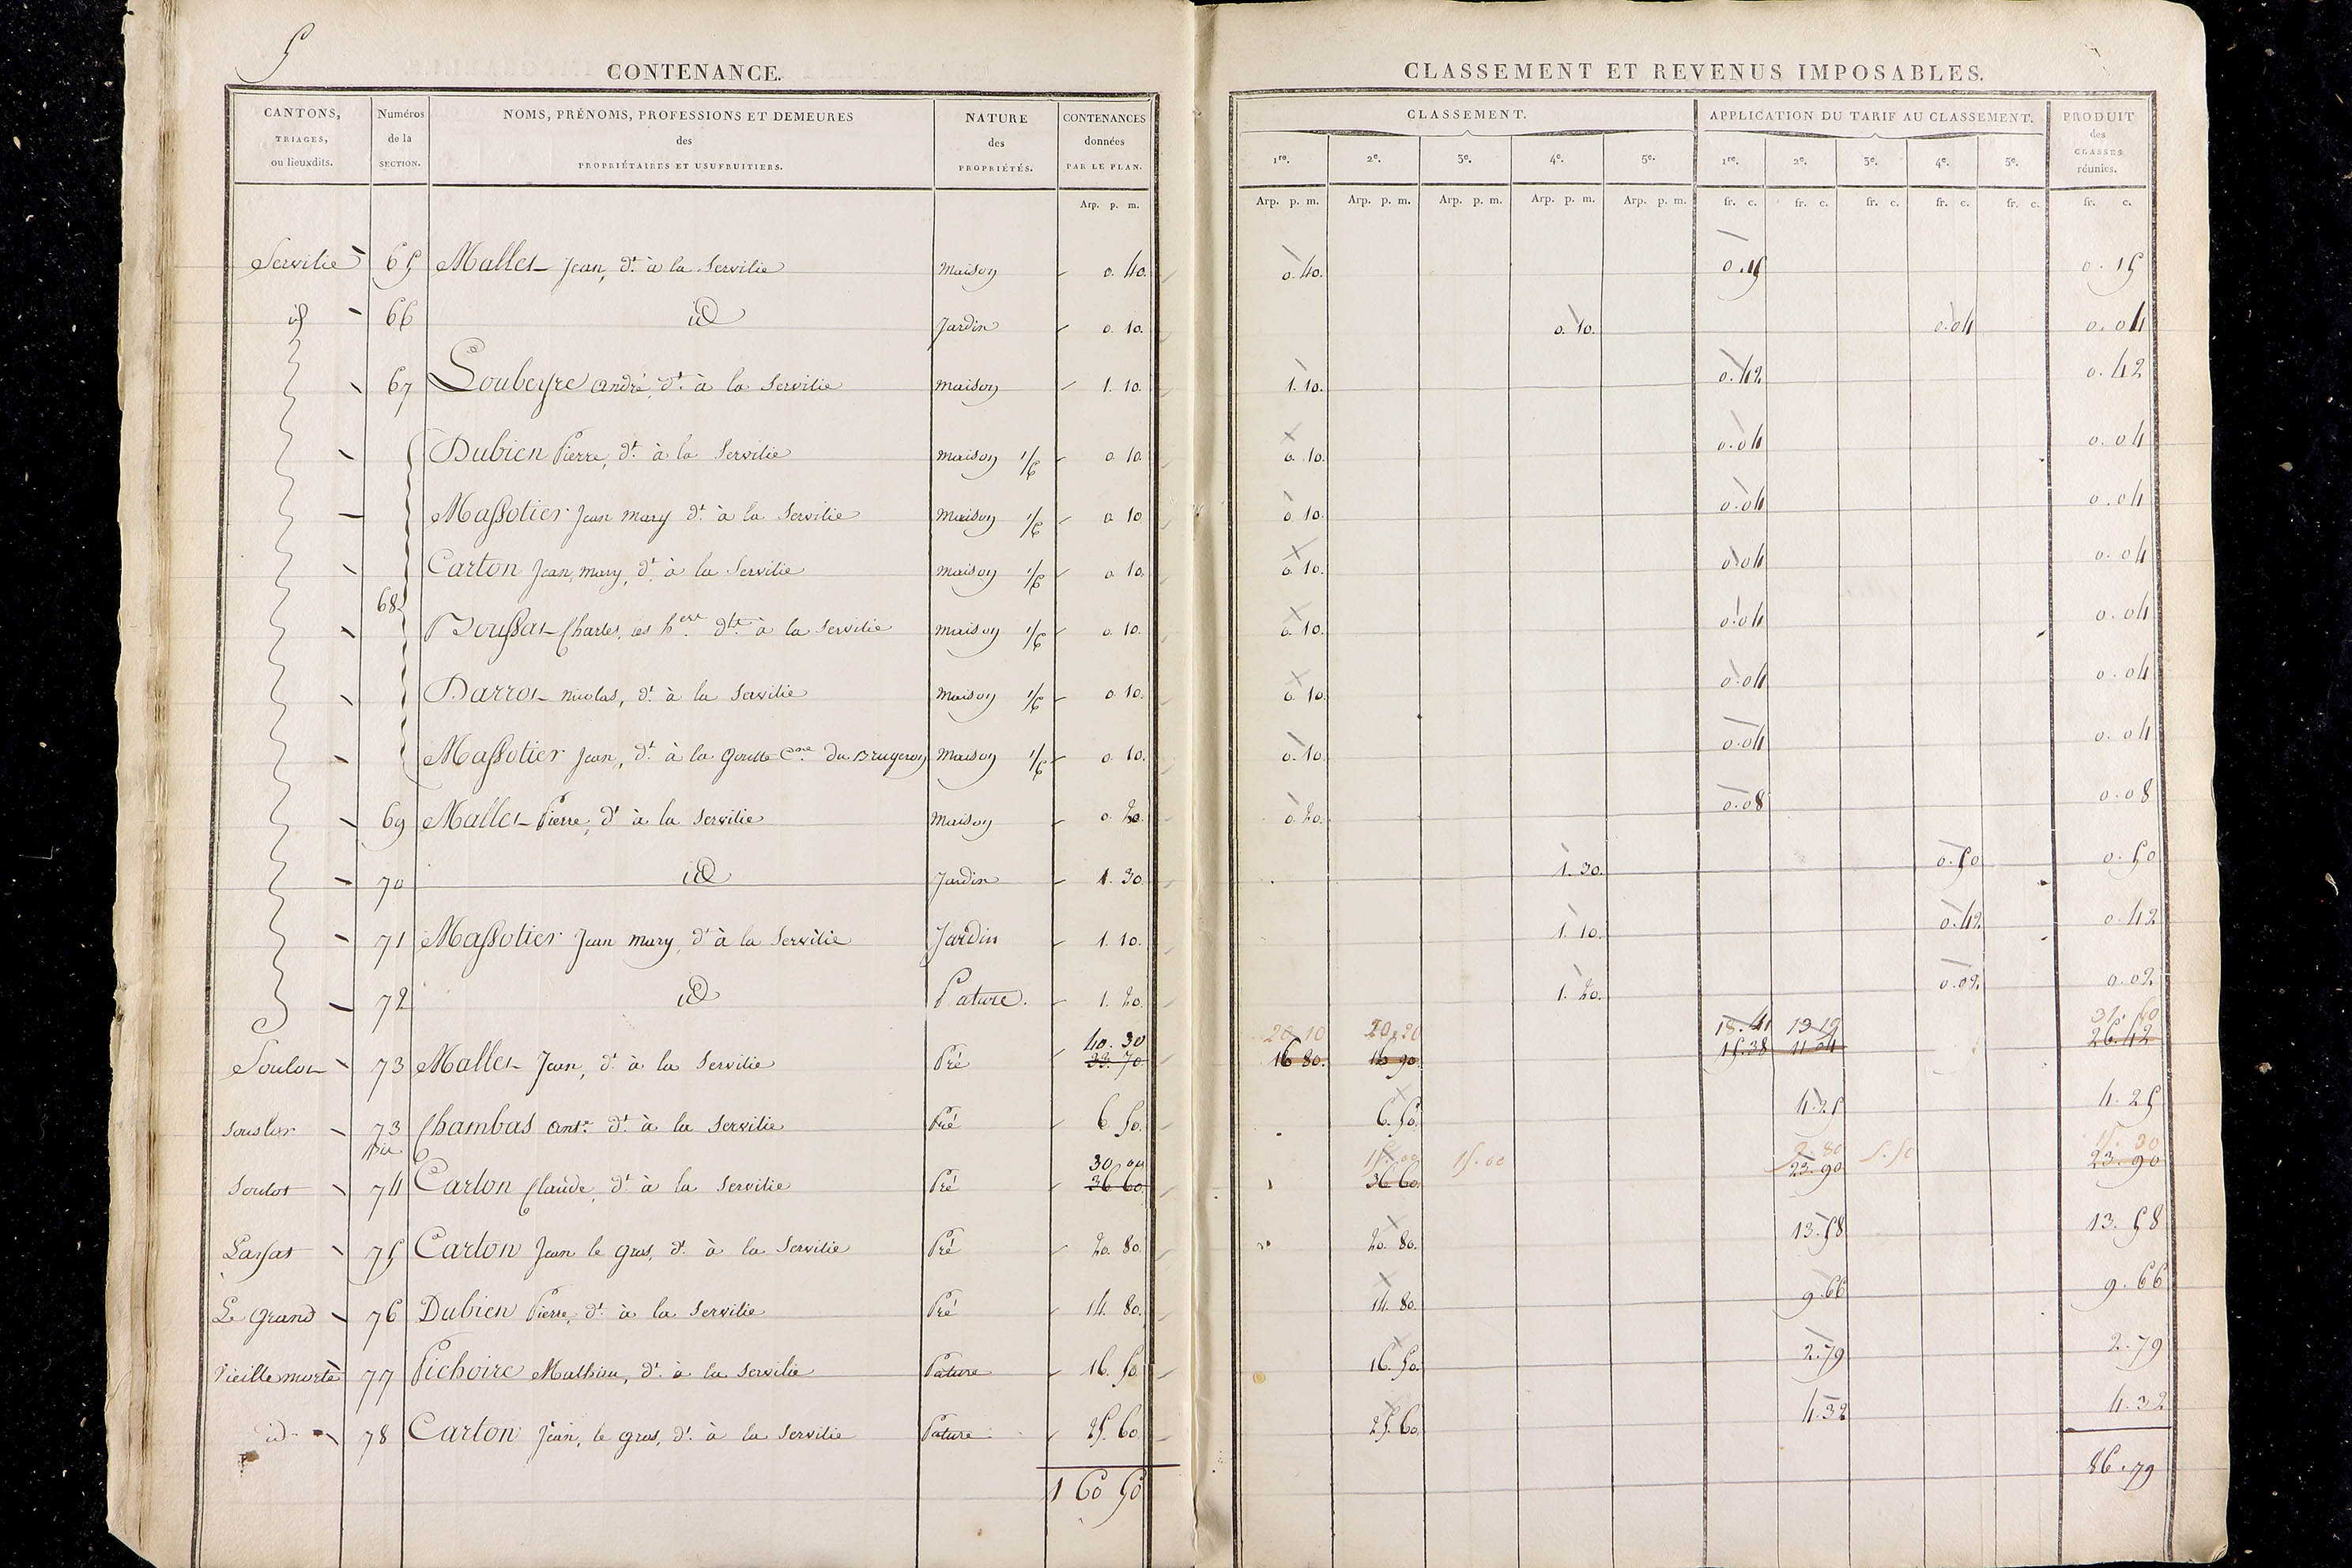 5
CONTENANCE.
CANTONS, TRIAGES, ou lieuxdits. | Numéros de la SECTION. | NOMS, PRÉNOMS, PROFESSIONS ET DEMEURES des PROPRIÉTAIRES ET USUFRUITIERS. | NATURE des PROPRIÉTÉS. | CONTENANCES données PAR LE PLAN.
Arp. p. m.
Servilie 65 Mallet Jean, dt. à la Servilie Maison 0. 40.
id 66 id Jardin 0. 10.
67 Loubeyre andré, dt. à la Servilie maison 1. 10.
68
Dubien Pierre, dt. à la Servilie maison 1/6 0 10.
Massotier Jean mary dt. à la Servilie maison 1/6 0 10
Carton Jean mary, dt. à la Servilie maison 1/6 0 10.
Boussat Charles, ses hers. dts. à la Servilie maison 1/6 0. 10.
Darrot nicolas, dt. à la Servilie maison 1/6 0. 10.
Massotier Jean, dt. à la Goutte Cne. du Brugeron Maison 1/6 0 10.
69 Mallet Pierre, dt à la Servilie Maison 0. 20.
70 id Jardin 1. 30.
71 Massotier Jean mary, dt à la Servilie Jardin 1. 10.
72 id Pature. 1. 20.
40. 30
Soulot 73 Mallet Jean, dt. à la Servilie Pré 33. 70.
73 bis Chambas antne. dt. à la Servilie Pré 6 50.
30. 00
Soulot 74 Carton Claude, dt. à la Servilie Pré 36 60.
75 Carton Jean le gros, dt. à la Servilie Pré 20. 80.
Le Grand 76 Dubien Pierre, dt. à la Servilie Pré 14. 80.
Vieille morte 77 Pichoire Mathieu, dt. à la Servilie Pature 16. 50
id. 78 Carton Jean, le gros, dt. à la Servilie Pature 25. 60
160 50
CLASSEMENT ET REVENUS IMPOSABLES.
CLASSEMENT. | APPLICATION DU TARIF AU CLASSEMENT. | PRODUIT des CLASSES réunies.
1re. 2e. 3e. 4e. 5e. 1re. 2e. 3e. 4e. 5e.
Arp. p. m. Arp. p. m. Arp. p. m. Arp. p. m. Arp. p. m. fr. c. fr. c. fr. c. fr. c. fr. c. fr. c.
0. 40. 0. 15 0. 15
0. 10. 0. 04 0. 04
1. 10. 0. 42 0. 42
0. 10. 0. 04 0. 04
0 10. 0. 04 0. 04
0 10. 0. 04 0. 04
0. 10. 0. 04 0. 04
0. 10. 0. 04 0. 04
0. 10. 0. 04 0. 04
0. 20. 0. 08 0. 08
1. 30. 0. 50 0. 50
1. 10. 0. 42 0. 42
1. 20. 0. 02 0. 02
20. 10 20. 20 18. 41 13 19 31. 60
16 80. 16 90. 15. 38 11 04 26. 42
6. 50. 4. 25 4. 25
15. 00 15. 00 9. 80 5. 50 15. 30
36 60. 23. 90 23. 90
20. 80. 13. 58 13. 58
14. 80. 9. 66 9. 66
16. 50. 2. 79 2. 79
25. 60. 4. 32 4. 32
86. 79